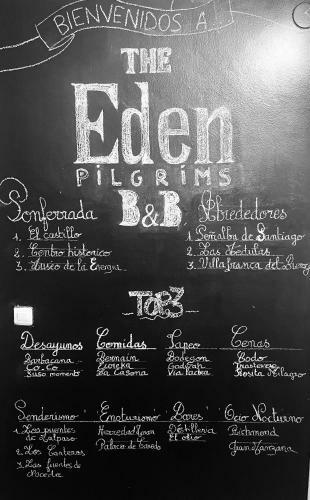 BIENVENIDOS A...
THE
Eden
PILGRIMS
B&B
Ponferrada
1. El castillo
2. Centro histórico
3. Museo de la Energía
Alrededores
1. Peñalba de Santiago
2. Las Médulas
3. Villafranca del Bierzo
TOP3
Desayunos
Barbacana
Co.Co
Suso momento
Comidas
Bermain
La Casona
Tapeo
Bodegon
Godivah
Vía láctea
Cenas
Bodo
Trastevere
Rosita Milagro
Senderismo
1. Los puentes de
2. Los Canteros
3. Las fuentes de
Enoturismo
Palacio de Canedo
Bares
Destileria
El otro
Ocio Nocturno
Richmond
Gran Manzana